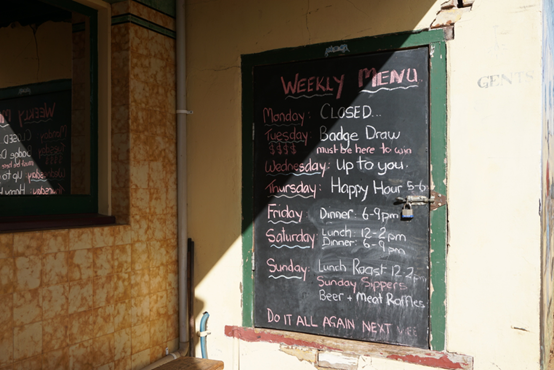 WEEKLY MENU
Monday: CLOSED...
Tuesday: Badge Draw
$$$$ must be here to win
Wednesday: Up to you.
Thursday: Happy Hour 5-6
Friday Dinner: 6-9pm
Saturday: Lunch: 12-2pm
Dinner: 6-9pm
Sunday: Lunch Roast 12-2
Sunday Sippers
Beer + Meat Raffles
DO IT ALL AGAIN NEXT
GENTS